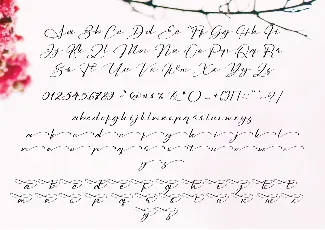 Aa Bb Cc Dd Ee Ff Gg Hh Ii
Jj Kk Ll Mm Nn Oo Pp Qq Rr
Ss Tt Uu Vv Ww Xx Yy Zz
0123456789
abcdefghijklmnopqrstuvwxyz
a b c d e f g h i j k l
m n o p q r s t u v w x
y z
a b c d e f g h i j k l
m n o p q r s t u v w x
y z